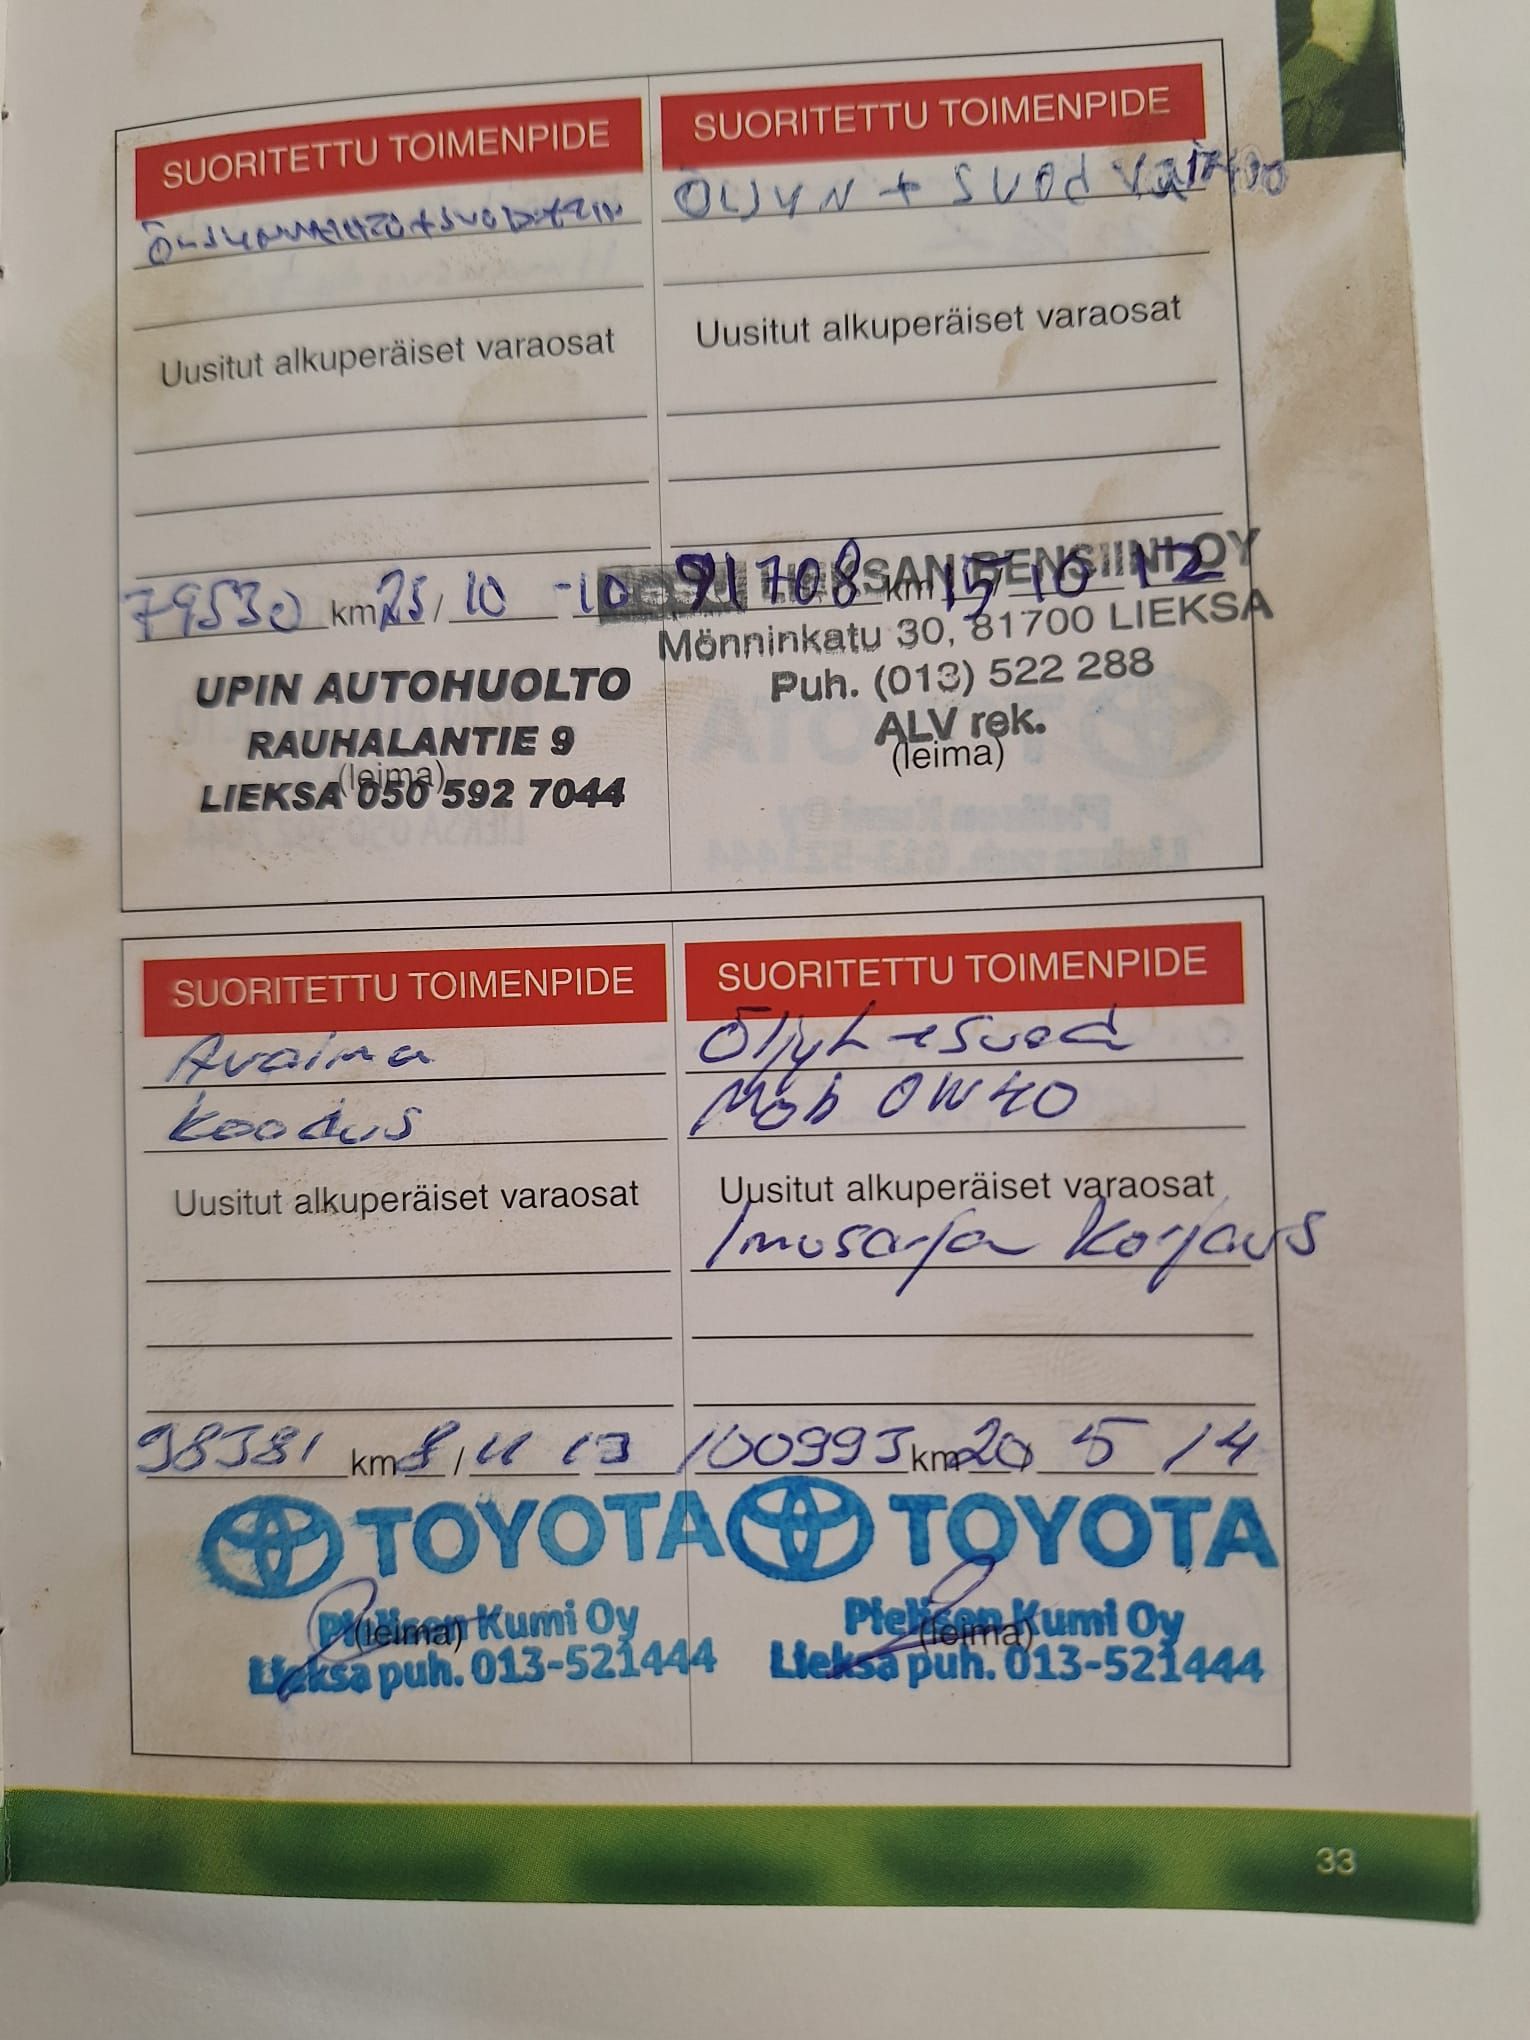 SUORITETTU TOIMENPIDE
ÖLJYNVAIHTO + SUODATTIN
Uusitut alkuperäiset varaosat
79530 km 25 / 10 -10
UPIN AUTOHUOLTO
RAUHALANTIE 9
(leima)
LIEKSA 050 592 7044
SUORITETTU TOIMENPIDE
ÖLJYN + SUOd
Uusitut alkuperäiset varaosat
LIEKSAN BENSIINI OY
91708 km 15 10 12
Mönninkatu 30, 81700 LIEKSA
Puh. (013) 522 288
ALV rek.
(leima)
SUORITETTU TOIMENPIDE
Avaima
koodus
Uusitut alkuperäiset varaosat
98381 km 8 / 11 13
TOYOTA
Pielisen Kumi Oy
(leima)
Lieksa puh. 013-521444
SUORITETTU TOIMENPIDE
Öljyt + suod
Mob 0W40
Uusitut alkuperäiset varaosat
Imusarja korjaus
100993 km 20 / 5 14
TOYOTA
Pielisen Kumi Oy
(leima)
Lieksa puh. 013-521444
33